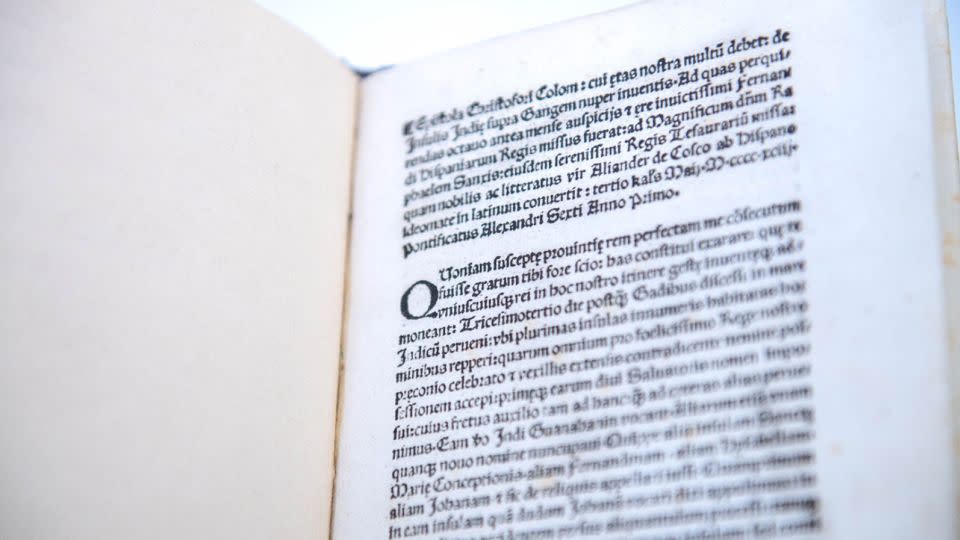 ¶ Epistola Christofori Colom: cui ętas nostra multū debet: de
Insulis Indię supra Gangem nuper inuentis. Ad quas perqui-
rendas octauo antea mense auspicijs ⁊ ęre inuictissimi Fernan
di Hispaniarum Regis missus fuerat: ad Magnificum dn̄m Ra
phaelem Sanxis: eiusdem serenissimi Regis Tesaurariū missa:
quam nobilis ac litteratus vir Aliander de Cosco ab Hispano
ideomate in latinum conuertit: tertio kal's Maij. M.cccc.xciij.
Pontificatus Alexandri Sexti Anno Primo.
QVoniam susceptę prouintię rem perfectam me cōsecutum
fuisse gratum tibi fore scio: has constitui exarare: quę te
vniuscuiusq; rei in hoc nostro itinere gestę inuentęq; ad-
moneant: Tricesimotertio die postq̄ Gadibus discessi in mare
Indicū perueni: vbi plurimas insulas innumeris habitatas ho-
minibus repperi: quarum omnium pro foelicissimo Rege nostro
pręconio celebrato ⁊ vexillis extensis contradicente nemine pos-
sessionem accepi: primęq; earum diui Saluatoris nomen impo-
sui: cuius fretus auxilio tam ad hanc: q̄ ad cęteras alias perue-
nimus. Eam v̊o Indi Guanahanin vocant. Aliarum etiā vnam
quanq; nouo nomine nuncupaui. Quippe aliā insulam Sanctę
Marię Conceptionis. aliam Fernandinam. aliam Hysabellam.
aliam Johanam. ⁊ sic de reliquis appellari iussi.
in eam insulam quā dudum Johanā vocari dixi